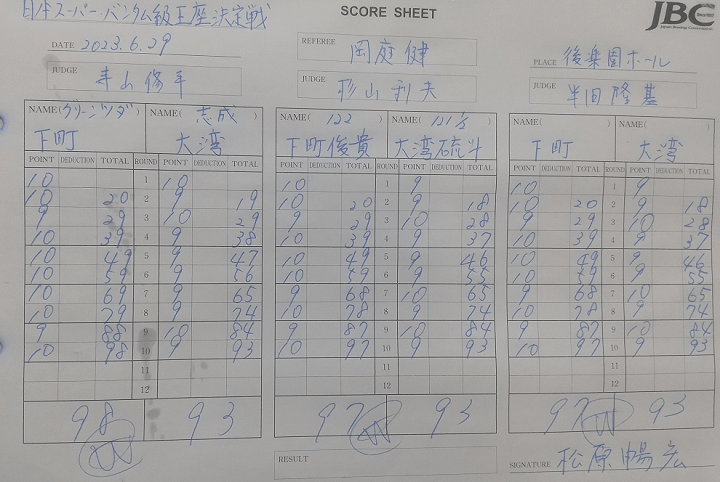 日本スーパー・バンタム級王座決定戦
SCORE SHEET
JBC
DATE 2023.6.29
REFEREE 岡庭健
PLACE 後楽園ホール
JUDGE
JUDGE 杉山利夫
JUDGE 半田隆基
NAME(クリーンツダ) NAME( 志成 )
下町 大湾
POINT DEDUCTION TOTAL ROUND POINT DEDUCTION TOTAL
10 1 10
10 20 2 9 19
9 29 3 10 29
10 39 4 9 38
10 49 5 9 47
10 59 6 9 56
10 69 7 9 65
10 79 8 9 74
9 88 9 10 84
10 98 10 9 93
11
12
98 93
NAME( 122 ) NAME( 121 1/2 )
下町俊貴 大湾硫斗
POINT DEDUCTION TOTAL ROUND POINT DEDUCTION TOTAL
10 1 9
10 20 2 9 18
9 29 3 10 28
10 39 4 9 37
10 49 5 9 46
10 59 6 9 55
9 68 7 10 65
10 78 8 9 74
9 87 9 10 84
10 97 10 9 93
11
12
97 93
NAME( ) NAME( )
下町 大湾
POINT DEDUCTION TOTAL ROUND POINT DEDUCTION TOTAL
10 1 9
10 20 2 9 18
9 29 3 10 28
10 39 4 9 37
10 49 5 9 46
10 59 6 9 55
9 68 7 10 65
10 78 8 9 74
9 87 9 10 84
10 97 10 9 93
11
12
97 93
RESULT
SIGNATURE 松原暢宏